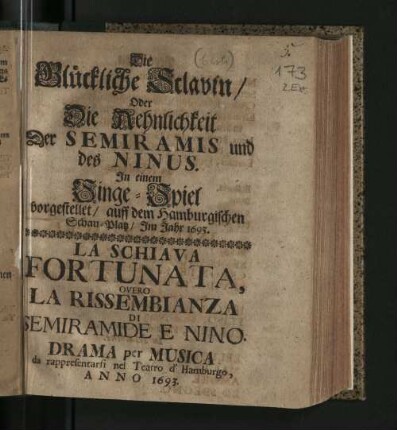 Die
Glückliche Sclavin/
Oder
Die Aehnlichkeit
Der SEMIRAMIS und
des NINUS.
In einem
Singe-Spiel
vorgestellet/ auff dem Hamburgischen
Schau-Platz/ Im Jahr 1693.
LA SCHIAVA
FORTUNATA,
OVERO
LA RISSEMBIANZA
DI
SEMIRAMIDE E NINO.
DRAMA per MUSICA
da rappresentarsi nel Teatro d' Hamburgo,
ANNO 1693.
173